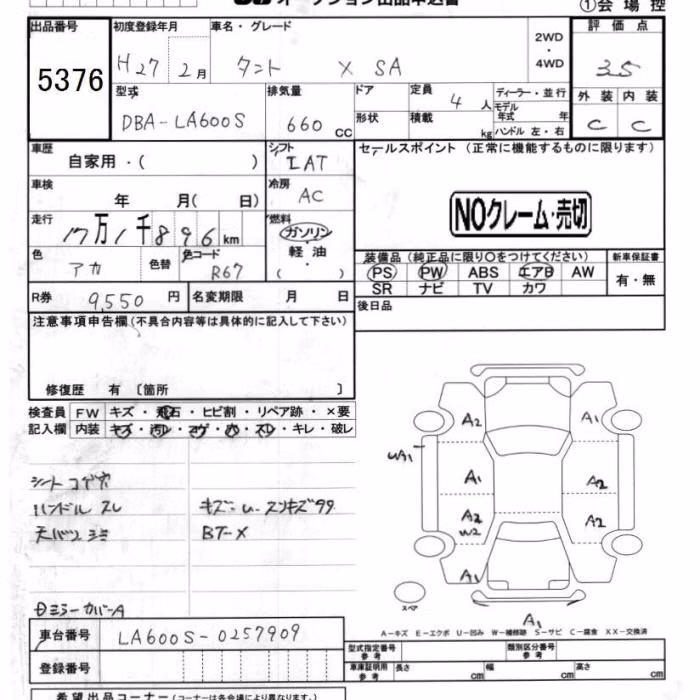 ①会場控
出品番号
5376
初度登録年月
H27 2月
車名・グレード
タント X SA
2WD
・
4WD
評価点
3.5
型式
DBA-LA600S
排気量
660 CC
ドア
形状
定員
4 人
積載
kg
ディーラー・並行
モデル年式 年
ハンドル 左・右
外装 内装
C C
車歴
自家用・( )
シフト
IAT
セールスポイント (正常に機能するものに限ります)
車検
年 月( 日)
冷房
AC
NOクレーム・売切
走行
17万1千896km
燃料
ガソリン
軽油
( )
色
アカ
色替
色コード
R67
装備品 (純正品に限り○をつけてください)
PS PW ABS エアB AW
SR ナビ TV カワ
新車保証書
有・無
R券
9,550 円
名変期限 月 日
後日品
注意事項申告欄(不具合内容等は具体的に記入して下さい)
修復歴 有 〔箇所 〕
検査員
記入欄
FW キズ・飛石・ヒビ割・リペア跡・×要
内装 キズ・汚レ・コゲ・穴・スレ・キレ・破レ
シート コゲ穴
ハンドル スレ
天バリ シミ
キズ・U・スリキズ
BT-X
A2
A1
UA1
A1
A2
A2
W2
A2
A1
A1
スペア
A-キズ E-エクボ U-凹み W-補修跡 S-サビ C-腐食 XX-交換済
車台番号
LA600S-0257909
登録番号
型式指定番号
参考
類別区分番号
参考
車庫証明用
参考
長さ cm
幅 cm
高さ cm
希望出品コーナー(コーナーは各会場により異なります。)